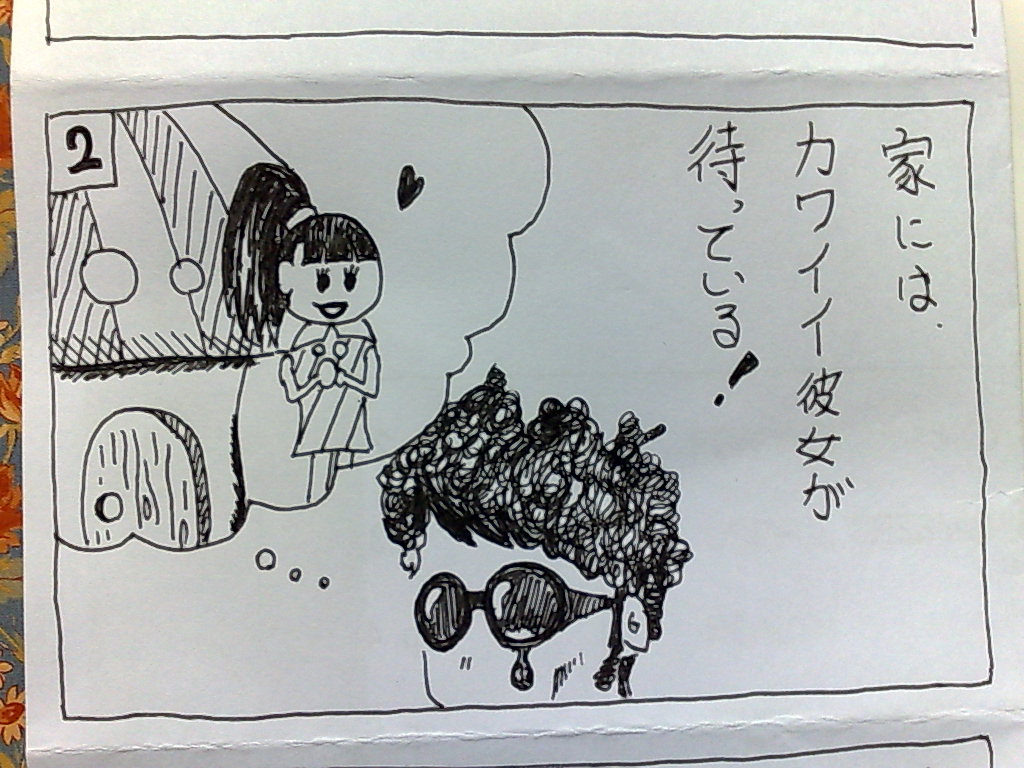 2
家には、
カワイイ彼女が
待っている!